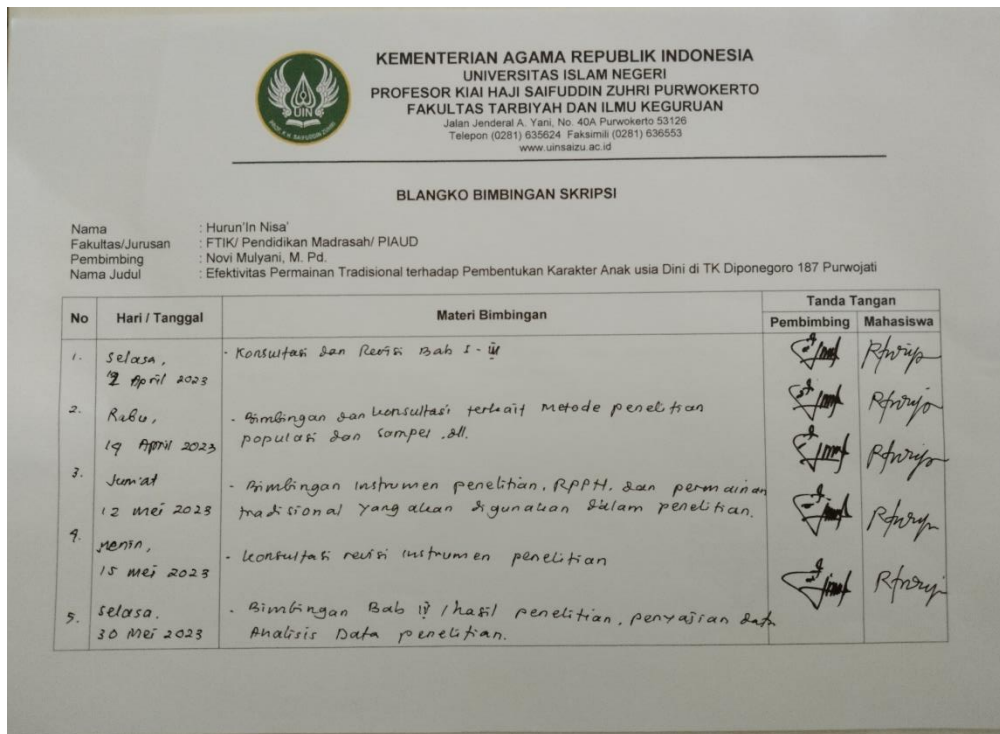 KEMENTERIAN AGAMA REPUBLIK INDONESIA
UNIVERSITAS ISLAM NEGERI
PROFESOR KIAI HAJI SAIFUDDIN ZUHRI PURWOKERTO
FAKULTAS TARBIYAH DAN ILMU KEGURUAN
Jalan Jenderal A. Yani, No. 40A Purwokerto 53126
Telepon (0281) 635624 Faksimili (0281) 636553
www.uinsaizu.ac.id
UIN
BLANGKO BIMBINGAN SKRIPSI
Nama : Hurun'In Nisa'
Fakultas/Jurusan : FTIK/ Pendidikan Madrasah/ PIAUD
Pembimbing : Novi Mulyani, M. Pd.
Nama Judul : Efektivitas Permainan Tradisional terhadap Pembentukan Karakter Anak usia Dini di TK Diponegoro 187 Purwojati
No Hari / Tanggal Materi Bimbingan Tanda Tangan
Pembimbing Mahasiswa
1. Selasa, - Konsultasi dan Revisi Bab I - III
April 2023
2. Rabu, - Bimbingan dan konsultasi terkait metode penelitian
19 April 2023 populasi dan sampel, dll.
3. Jum'at - Bimbingan instrumen penelitian, RPPH, dan permainan
12 Mei 2023 tradisional yang akan digunakan dalam penelitian.
4. Senin, - konsultasi revisi instrumen penelitian
15 Mei 2023
5. Selasa. - Bimbingan Bab IV / hasil penelitian, penyajian data
30 Mei 2023 Analisis Data penelitian.